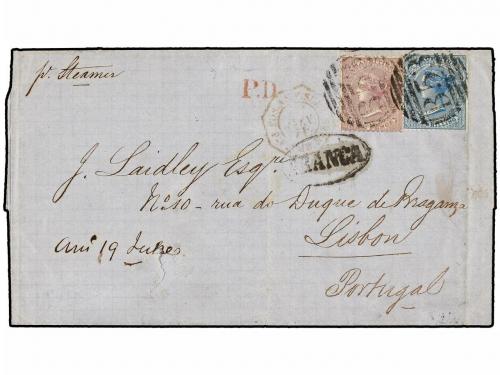 pr Steamer
P.D.
FRANCA
J. Laidley Esqre
No 10 - rua do Duque de Bragança
Lisbon
Portugal
Arri 19 June